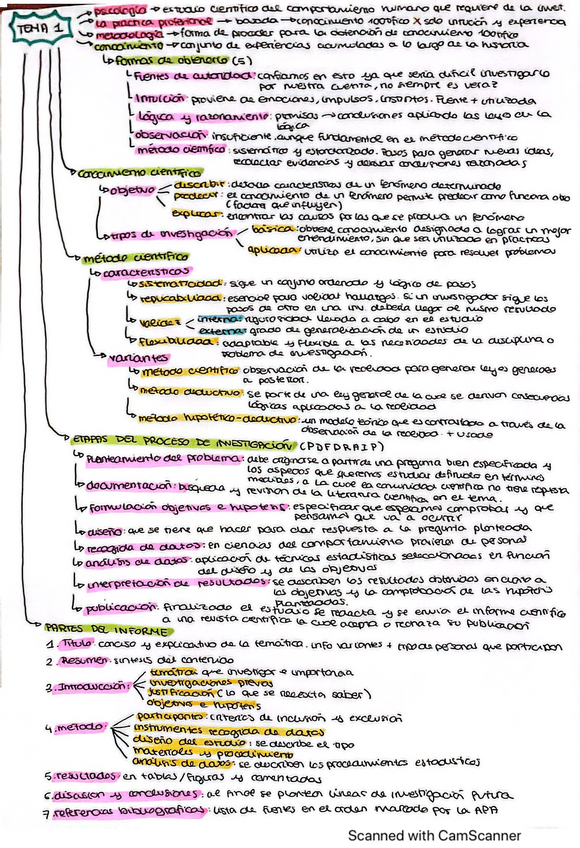 TEMA 1
psicología → estudio científico del comportamiento humano que requiere de la inves.
la práctica profesional → basada → conocimiento científico X solo intuición y experiencia
metodología → forma de proceder para la obtención de conocimiento científico
conocimiento → conjunto de experiencias acumuladas a lo largo de la historia
formas de obtenerlo (5)
Fuentes de autoridad: confiamos en esto ya que sería difícil investigarlo
por nuestra cuenta, no siempre es veraz
Intuición: proviene de emociones, impulsos, instintos. Fuente + utilizada
Lógica y razonamiento: premisas → conclusiones aplicando las leyes de la
lógica
observación: insuficiente, aunque fundamental en el método científico
método científico: sistemático y estandarizado. Pasos para generar nuevas ideas,
recolectar evidencias y derivar conclusiones razonadas
conocimiento científico
objetivo
describir: detalla características de un fenómeno determinado
predecir: el conocimiento de un fenómeno permite predecir como funciona otro
(factores que influyen)
explicar: encontrar las causas por las que se produce un fenómeno
tipos de investigación
básica: obtiene conocimiento designado a lograr un mejor
entendimiento, sin que sea utilizado en prácticas
aplicada: utiliza el conocimiento para resolver problemas
método científico
características
sistematicidad: sigue un conjunto ordenado y lógico de pasos
replicabilidad: esencial para validar hallazgos. Si un investigador sigue los
pasos de otro en una inv. debería llegar al mismo resultado
validez
interna: rigurosidad llevada a cabo en el estudio
externa: grado de generalización de un estudio
flexibilidad: adaptable y flexible a las necesidades de la disciplina o
problema de investigación.
variantes
método científico: observación de la realidad para generar leyes generales
a posteriori.
método deductivo: se parte de una ley general de la que se derivan consecuencias
lógicas aplicadas a la realidad
método hipotético-deductivo: un modelo teórico que es contrastado a través de la
observación de la realidad. + usado
ETAPAS DEL PROCESO DE INVESTIGACIÓN (PDFDRAIP)
Planteamiento del problema: debe originarse a partir de una pregunta bien especificada y
los aspectos que queremos estudiar definidos en términos
medibles, a la cual la comunidad científica no tiene respuesta
documentación: búsqueda y revisión de la literatura científica en el tema.
formulación objetivos e hipótesis: especificar que esperamos comprobar y que
pensamos que va a ocurrir
diseño: que se tiene que hacer para dar respuesta a la pregunta planteada
recogida de datos: en ciencias del comportamiento provienen de personas
análisis de datos: aplicación de técnicas estadísticas seleccionadas en función
del diseño y de los objetivos
interpretación de resultados: se describen los resultados obtenidos en cuanto a
los objetivos y la comprobación de las hipótesis
planteadas.
publicación: Finalizado el estudio se redacta y se envía el informe científico
a una revista científica la cual acepta o rechaza su publicación
PARTES DEL INFORME
1. Título: conciso y explicativo de la temática. info variantes + tipo de personas que participan
2. Resumen: síntesis del contenido
3. Introducción
temática: que investigar e importancia
investigaciones previas
justificación (lo que se necesita saber)
objetivos e hipótesis
4. método
participantes: criterios de inclusión y exclusión
instrumentos recogida de datos
diseño del estudio: se describe el tipo
materiales y procedimiento
análisis de datos: se describen los procedimientos estadísticos
5. resultados: en tablas/figuras y comentados
6. discusión y conclusiones: al final se plantean líneas de investigación futura
7. referencias bibliográficas: lista de fuentes en el orden marcado por la APA
Scanned with CamScanner